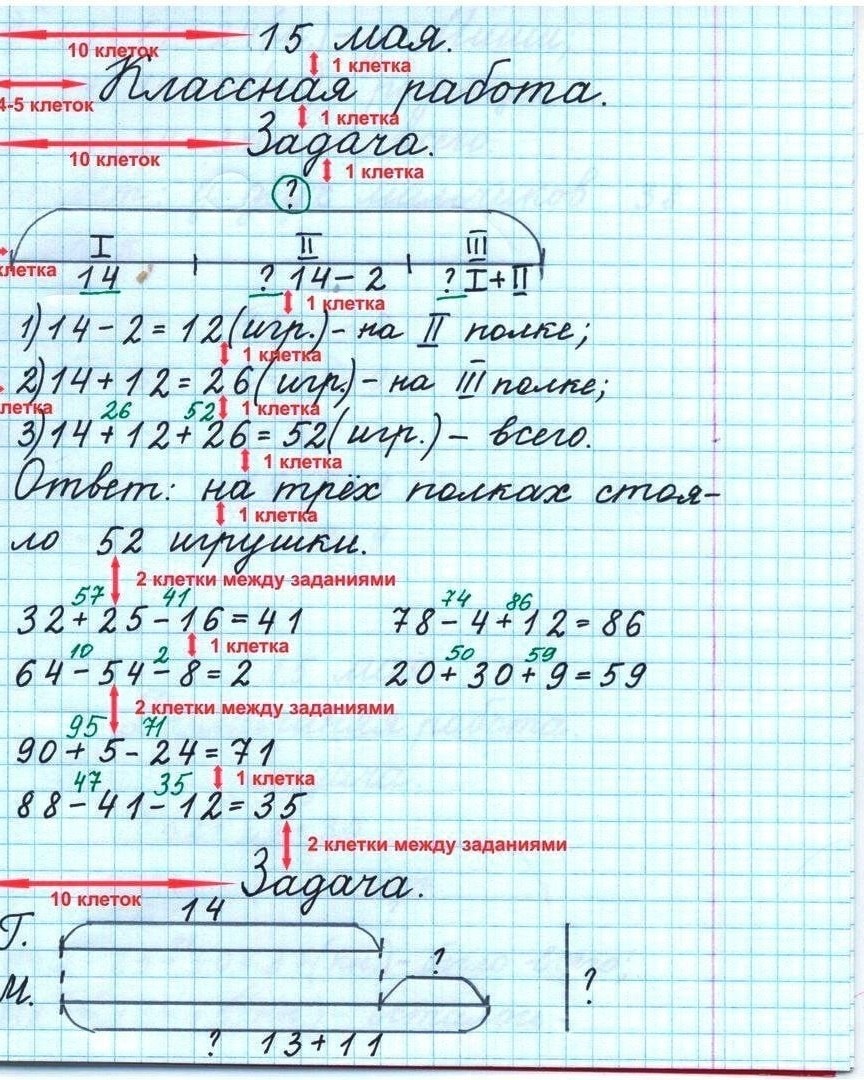 15 мая.
10 клеток
1 клетка
Классная работа.
4-5 клеток
1 клетка
Задача.
10 клеток
1 клетка
?
I II III
клетка
14 ? 14-2 ? I+II
1 клетка
1) 14-2=12(игр.)- на II полке;
1 клетка
2) 14+12=26(игр.)- на III полке;
клетка
1 клетка
26 52
3) 14+12+26=52(игр.)- всего.
1 клетка
Ответ: на трёх полках стоя-
1 клетка
ло 52 игрушки.
2 клетки между заданиями
57 41 74 86
32+25-16=41 78-4+12=86
1 клетка
10 2 50 59
64-54-8=2 20+30+9=59
2 клетки между заданиями
95 71
90+5-24=71
1 клетка
47 35
88-41-12=35
2 клетки между заданиями
Задача.
10 клеток
14
Г.
?
М.
?
? 13+11